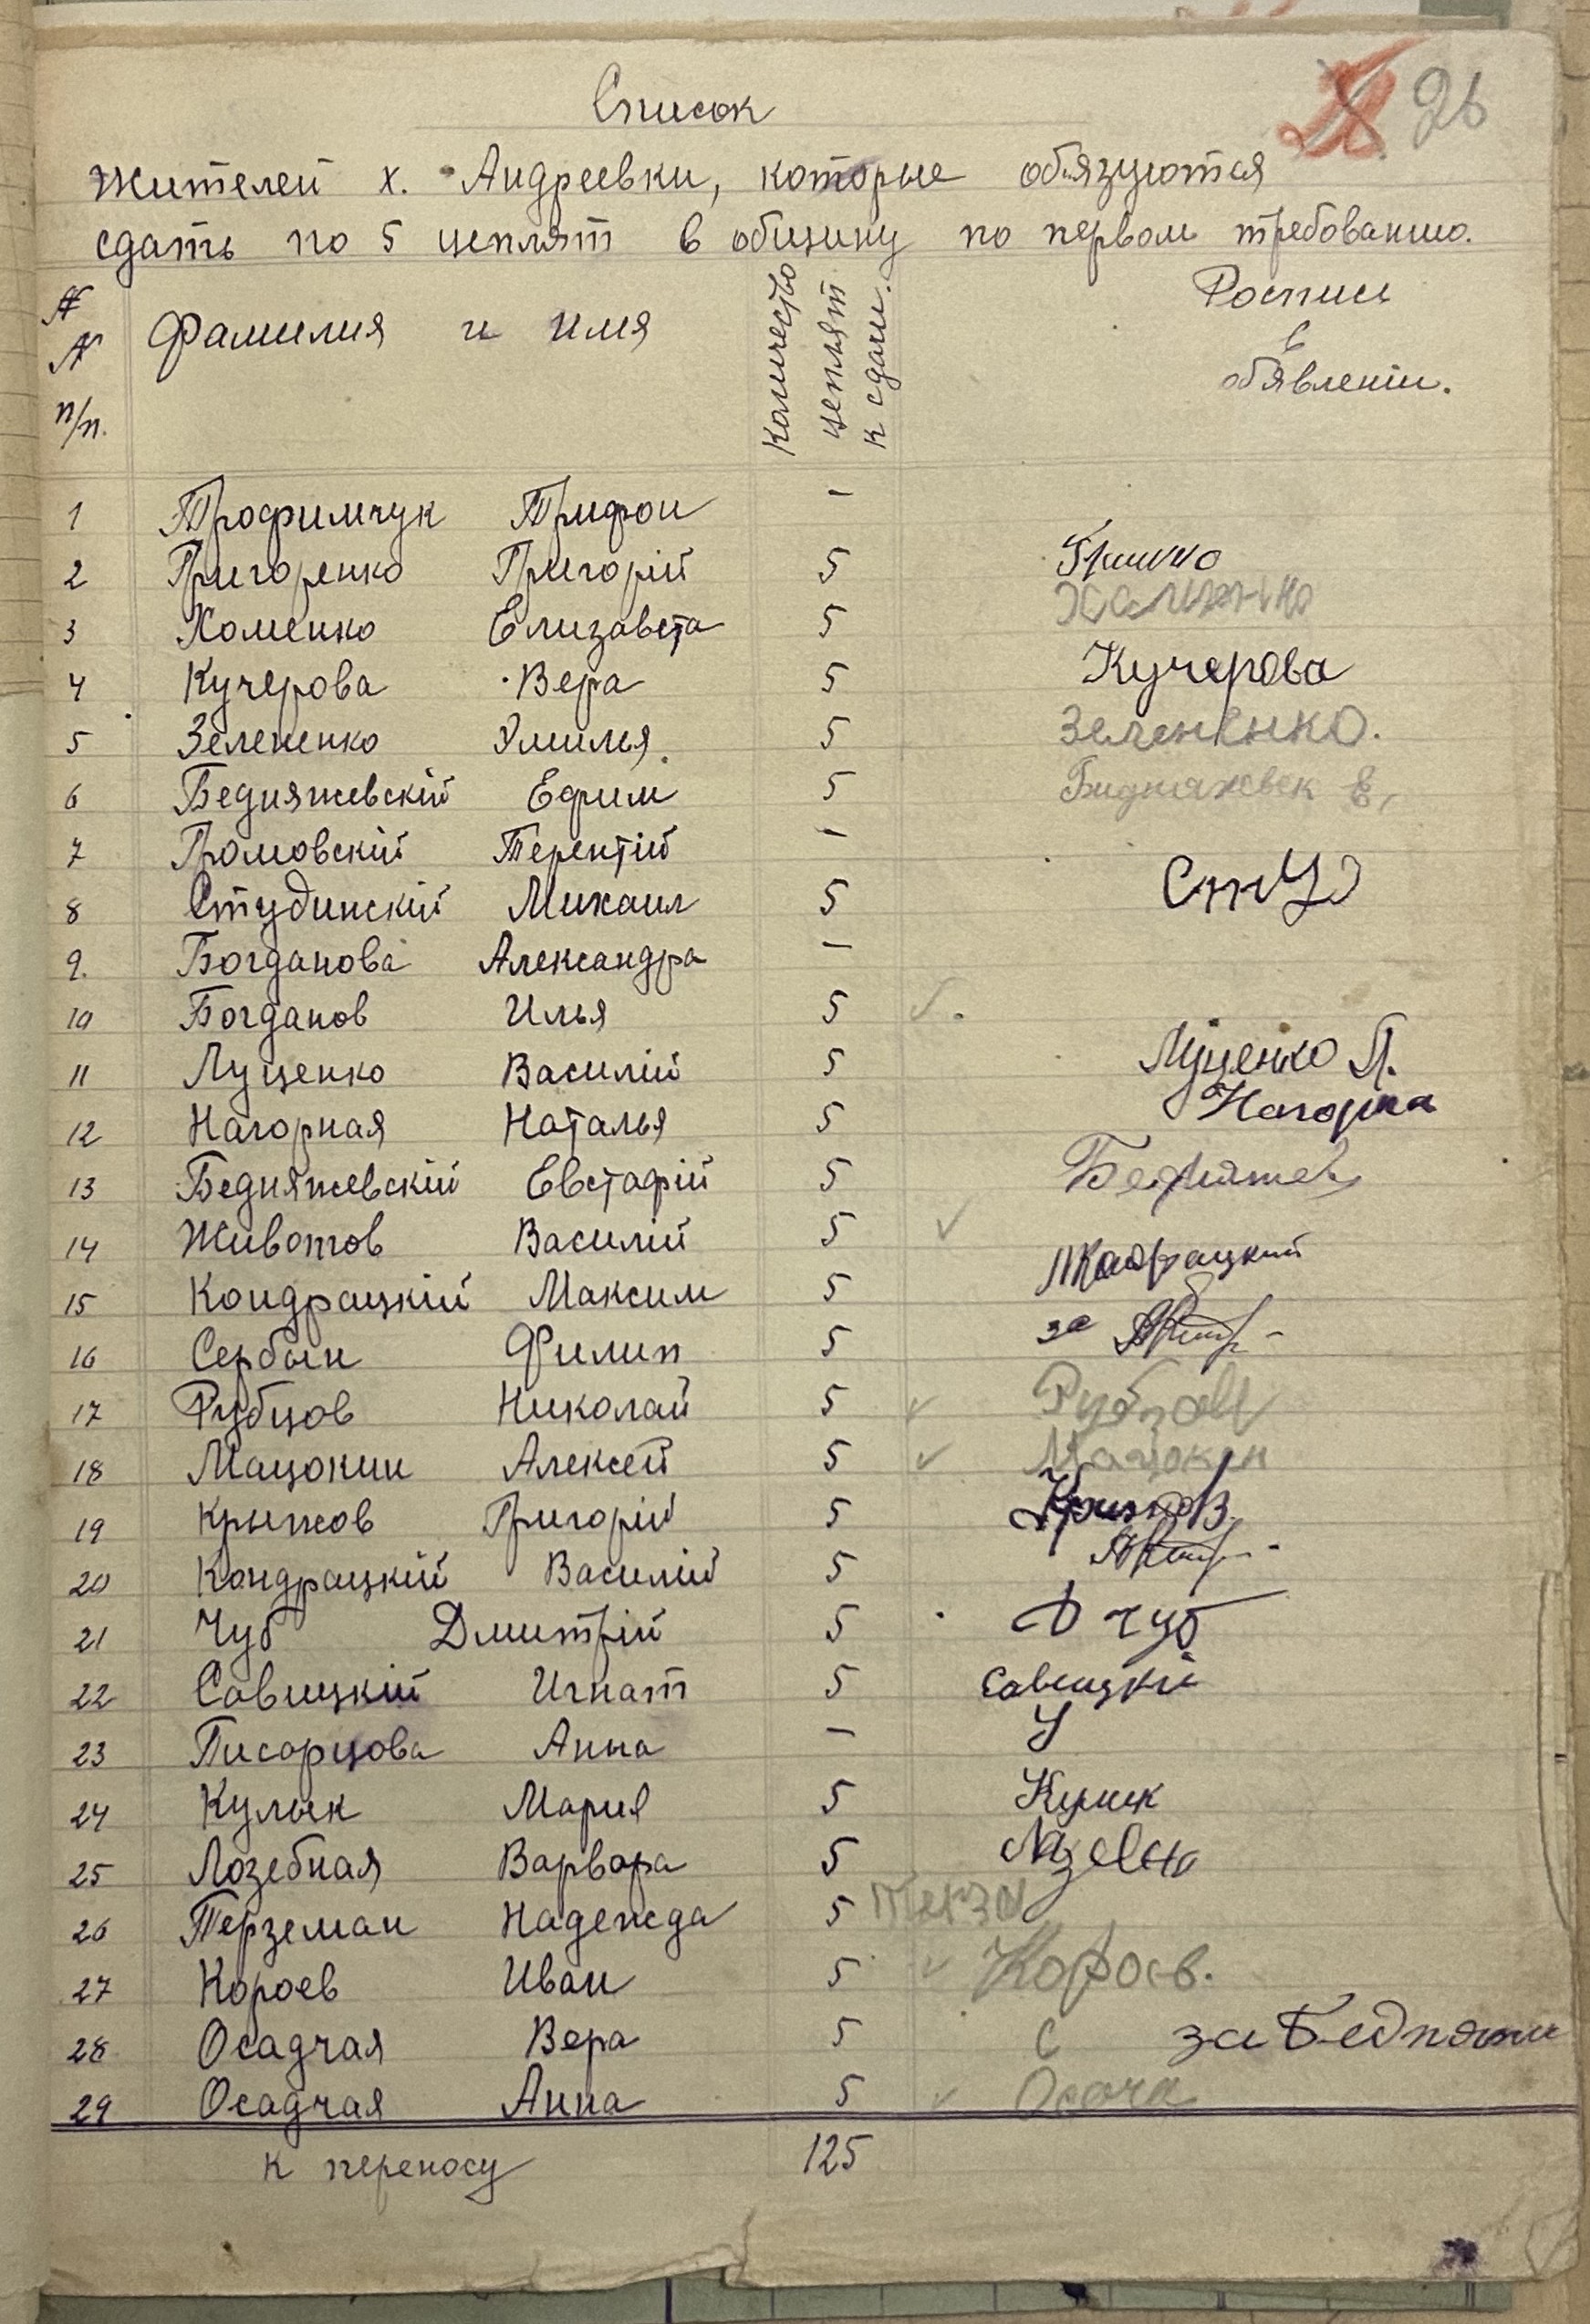 26
Список
жителей х. Андреевки, которые обязуются
сдать по 5 цеплят в общину по первом требованию.
№ № п/п.
Фамилия и имя
Количество цеплят к сдачи.
Роспись в обявленіи.
1 Трофимчук Трифон –
2 Григоренко Григорій 5
3 Хоменко Елизавета 5
4 Кучерова Вера 5 Кучерова
5 Зелененко Эмилья. 5 Зелененко.
6 Бедняжевскій Ефим 5
7 Громовскій Терентій –
8 Студинскій Михаил 5 Сту
9. Богданова Александра –
10 Богданов Илья 5 ✓.
11 Луценко Василій 5 Луценко П.
12 Нагорная Наталья 5 Нагорна
13 Бедняжевскій Евстафій 5 Бедняжев
14 Животов Василій 5 ✓
15 Кондрацкій Максим 5
16 Сербын Филип 5 за
17 Рубцов Николай 5 ✓ Рубцов
18 Мацокин Алексей 5 ✓ Мацокин
19 Крыжов Григорій 5
20 Кондрацкій Василій 5
21 Чуб Дмитрій 5 Д Чуб
22 Савицкій Игнат 5 Савицкій
23 Писарцова Анна –
24 Кулык Мария 5 Кулик
25 Лозебная Варвара 5
26 Терземан Надежда 5 Терзи
27 Короев Иван 5 ✓ Короев.
28 Осадчая Вера 5 С за Бедняжи
29 Осадчая Анна 5 ✓
к переносу 125